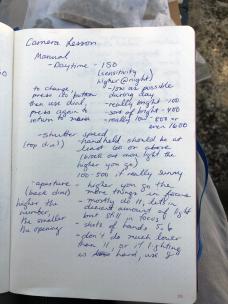 Camera Lesson
Manual
- Daytime - ISO
(sensitivity
higher @ night)
to change
press iso button
then use dial,
press again to
return to menu
- low as possible
during day
- really bright - 100
- sort of bright - 400
- really low - 800 or
even 1600
- Shutter speed
(top dial)
- handheld should be at
least 60 or above
(back as more light the
higher you go)
100-500 if really sunny
- aperture
(back dial)
higher the
number,
the smaller
the opening
- higher you go the
more things in focus
- mostly do 11, lets in
decent amount of light
but still in focus
- shots of hands 5.6
- don't do much lower
than 11, or if lighting
is hard, use 8